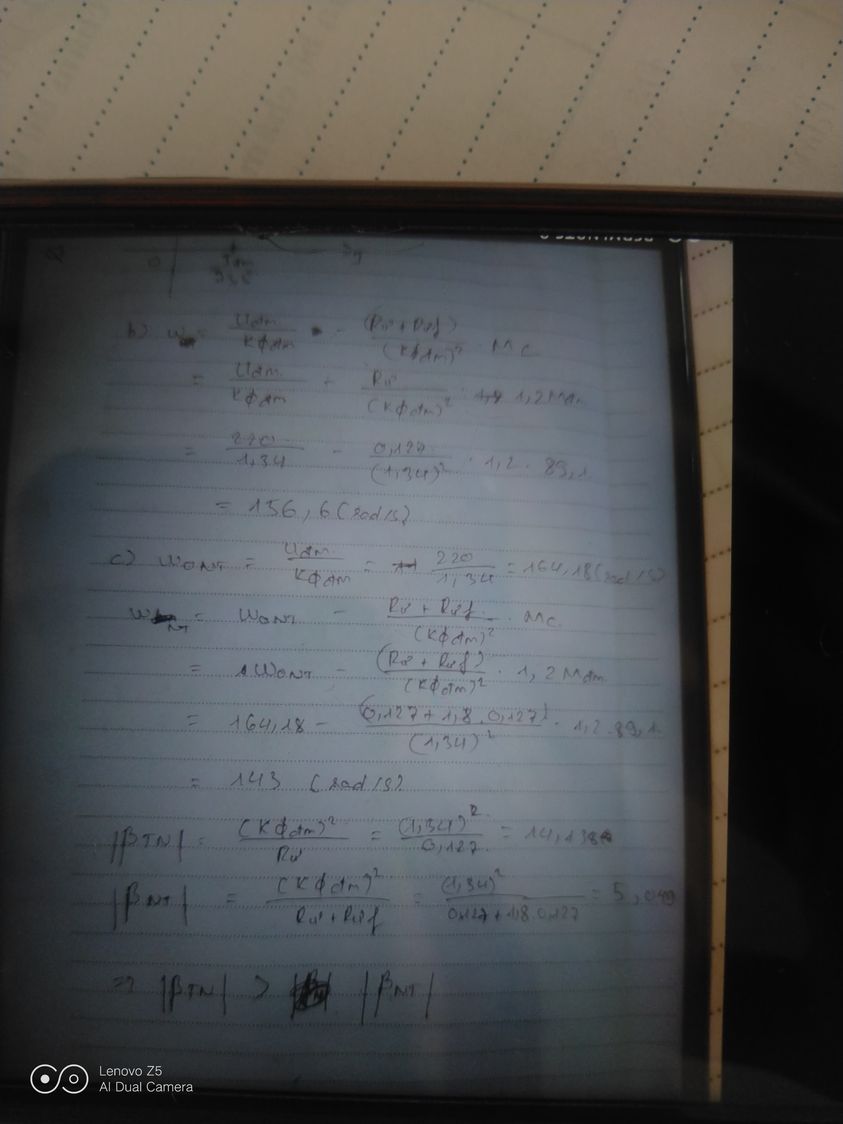 0
b) ω = Uđm / KΦđm - (Rư + Rưf) / (KΦđm)² . Mc
= Uđm / KΦđm + Rư / (KΦđm)² . 1,2 Mđm
= 220 / 1,34 - 0,127 / (1,34)² . 1,2 . 89,1
= 156,6 (rad/s)
c) ω0NT = Uđm / KΦđm = 220 / 1,34 = 164,18 (rad/s)
ωNT = ω0NT - Rư + Rưf / (KΦđm)² . Mc
= ω0NT - (Rư + Rưf) / (KΦđm)² . 1,2 Mđm
= 164,18 - (0,127 + 1,8 . 0,127) / (1,34)² . 1,2 . 89,1
= 143 (rad/s)
|βTN| = (KΦđm)² / Rư = (1,34)² / 0,127 = 14,138
|βNT| = (KΦđm)² / Rư + Rưf = (1,34)² / 0,127 + 1,8 . 0,127 = 5,049
=> |βTN| > |βNT|
Lenovo Z5
AI Dual Camera